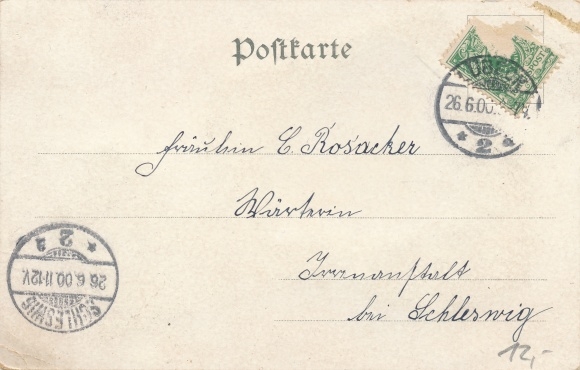 Postkarte
POST
LÜBECK
26.6.00.
* 2 *
Fräulein C. Rosacker
Wärterin
Irrenanstalt
bei Schleswig
SCHLESWIG
26.6.00.11-12V.
* 2 a
12,-